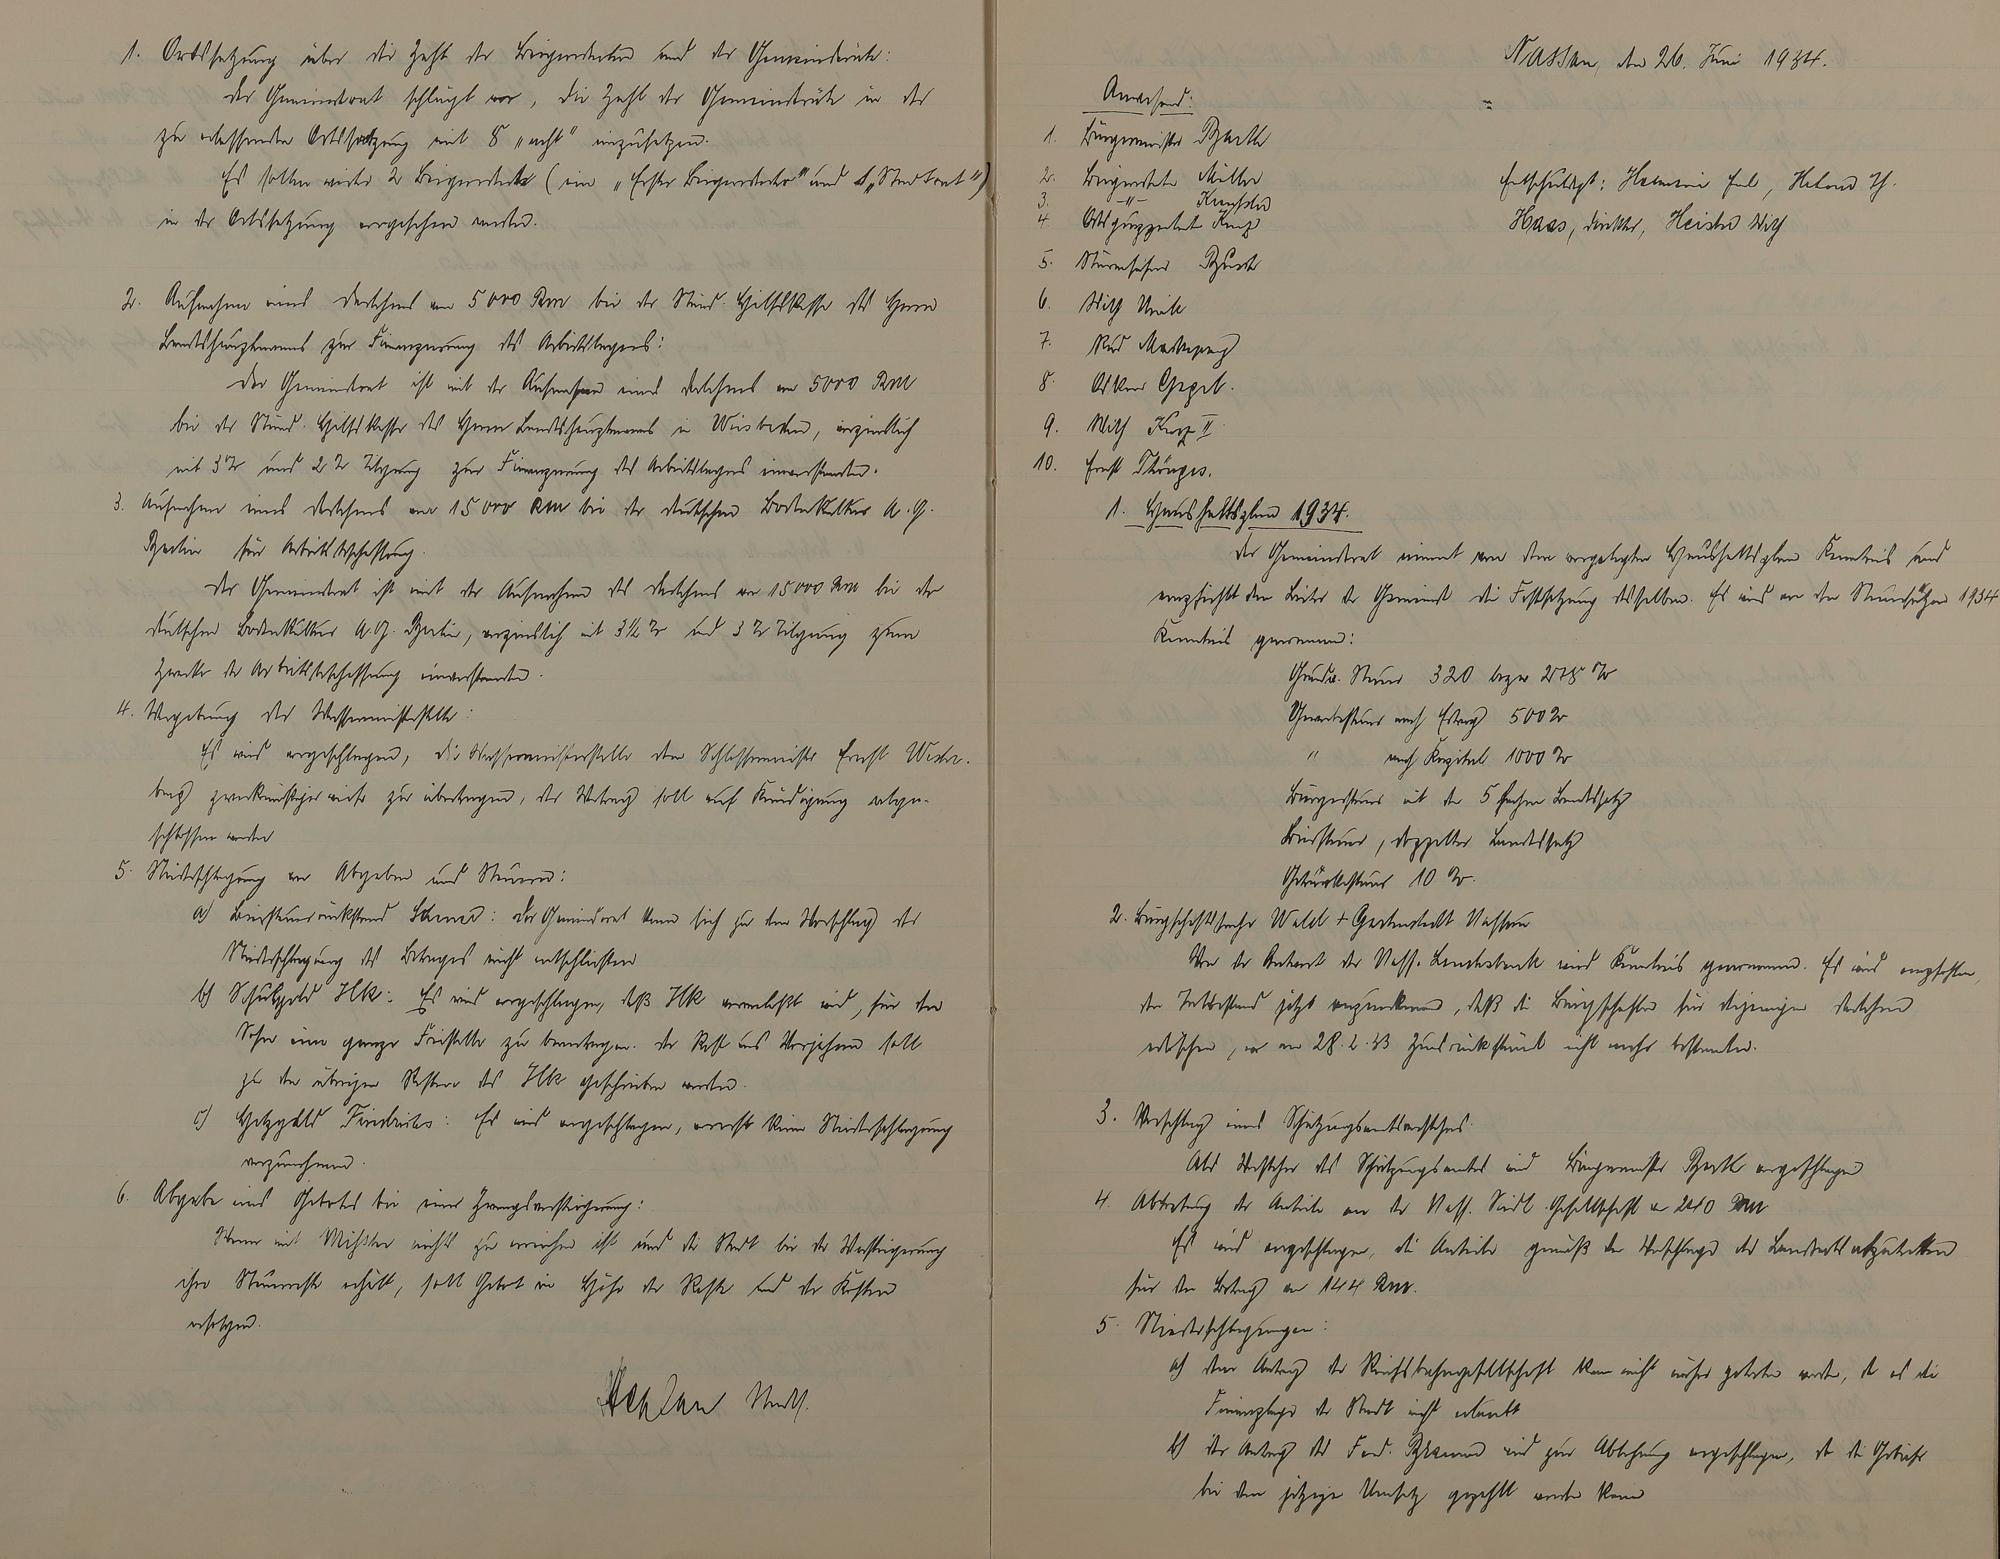 1. Ortssatzung über die Zahl der Beigeordneten und der Gemeinderäte:
Der Gemeinderat schlägt vor, die Zahl der Gemeinderäte in der
zu erlassenden Ortssatzung mit 8 „acht" einzusetzen.
Es sollen weiter 2 Beigeordnete (ein „Erster Beigeordneter" und 1 „Stadtrat")
in der Ortssatzung vorgesehen werden.
2. Aufnahme eines Darlehens von 5000 RM bei der Ständ. Hilfskasse des Herrn
Landeshauptmanns zur Finanzierung des Arbeitslagers:
Der Gemeinderat ist mit der Aufnahme eines Darlehens von 5000 RM
bei der Ständ. Hilfskasse des Herrn Landeshauptmanns in Wiesbaden, verzinslich
mit 3% und 2% Tilgung zur Finanzierung des Arbeitslagers einverstanden.
3. Aufnahme eines Darlehens von 15000 RM bei der Deutschen Bodenkultur A.G.
Berlin für Arbeitsbeschaffung.
Der Gemeinderat ist mit der Aufnahme des Darlehens von 15000 RM bei der
Deutschen Bodenkultur A.G. Berlin, verzinslich mit 3½% und 3% Tilgung zum
Zwecke der Arbeitsbeschaffung einverstanden.
4. Vergebung der Wassermeisterstelle:
Es wird vorgeschlagen, die Wassermeisterstelle dem Schlossermeister Ernst
zu übertragen, der Vertrag soll auf Kündigung abge-
schlossen werden
5. Niederschlagung von Abgaben und Steuern:
a) Biersteuerrückstand : Der Gemeinderat kann sich zu dem Vorschlag der
Niederschlagung des Betrages nicht entschliessen
b) Schulgeld Ilk: Es wird vorgeschlagen, daß Ilk veranlaßt wird, für den
Sohn eine ganze Freistelle zu beantragen. Der Rest aus Vorjahren soll
zu den übrigen Resten des Ilk geschrieben werden.
c) Holzgeld : Es wird vorgeschlagen, vorerst keine Niederschlagung
vorzunehmen.
6. Abgabe eines Gebotes bei einer Zwangsversteigerung:
Wenn mit nichts zu erreichen ist und die Stadt bei der Versteigerung
ihre Steuerreste erhält, soll Gebot in Höhe der Reste und der Kosten
erfolgen.
Nassau, den 26. Juni 1934.
Anwesend:
1. Bürgermeister
2. Beigeordneter Müller
3. -"-
4. Ortsgruppenleiter Kurz
5. Sturmführer
6. Wilh
7. Rud
8. Oskar
9. Wilh Kurz II
10. Ernst Thönges.
Entschuldigt: Hermann Heland Th.
Haas, Direktor, Heister Wilh
1. Haushaltsplan 1934.
Der Gemeinderat nimmt von dem vorgelegten Haushaltsplan Kenntnis und
empfiehlt dem Leiter der Gemeinde die Festsetzung desselben. Es wird von den Steuersätzen 1934
Kenntnis genommen:
Grundv. Steuer 320 bezw 278 %
Gewerbesteuer nach Ertrag 500%
" nach Kapital 1000%
Bürgersteuer mit dem 5 fachen Landessatz
Biersteuer, doppelter Landessatz
Getränkesteuer 10%.
2. Bürgschaftssache Wald + Gartenstadt Nassau
Von der Antwort der Nass. Landesbank wird Kenntnis genommen. Es wird empfohlen,
den Tatbestand jetzt anzuerkennen, daß die Bürgschaften für diejenigen Darlehen
erlöschen, wo am 28.2.33 Zinsrückstände nicht mehr bestanden.
3. Vorschlag eines Schätzungsamtsvorstehers.
Als Vorsteher des Schätzungsamtes wird Bürgermeister vorgeschlagen
4. Abtretung der Anteile an der Nass. Siedl. Gesellschaft von 240 RM
Es wird vorgeschlagen, die Anteile gemäß dem Vorschlage des Landrats abzutreten
für den Betrag von 144 RM.
5. Niederschlagungen:
a) dem Antrag der Reichsbahngesellschaft kann nicht näher getreten werden, da es die
Finanzlage der Stadt nicht erlaubt
b) der Antrag des wird zur Ablehnung vorgeschlagen, da die Gebühr
bei dem jetzigen Umsatz gezahlt werden kann